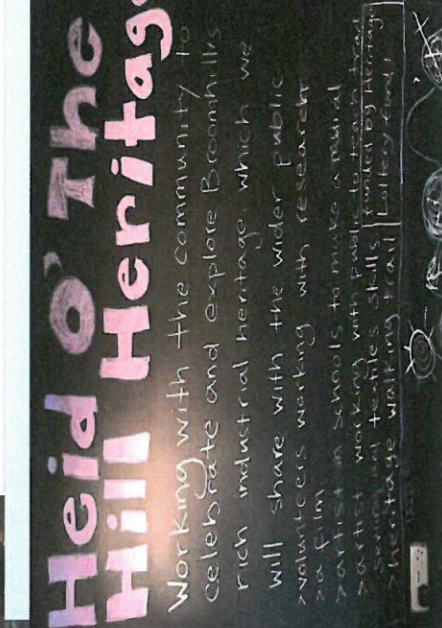 Heid O' The
Hill Heritage
Working with the community to
celebrate and explore Broomhills
rich industrial heritage which we
will share with the wider public
>volunteers working with research
>a film
>artist in schools to make a mural
>artist working with public to
sewing textiles skills funded by Heritage
>heritage walking trail Lottery fund!